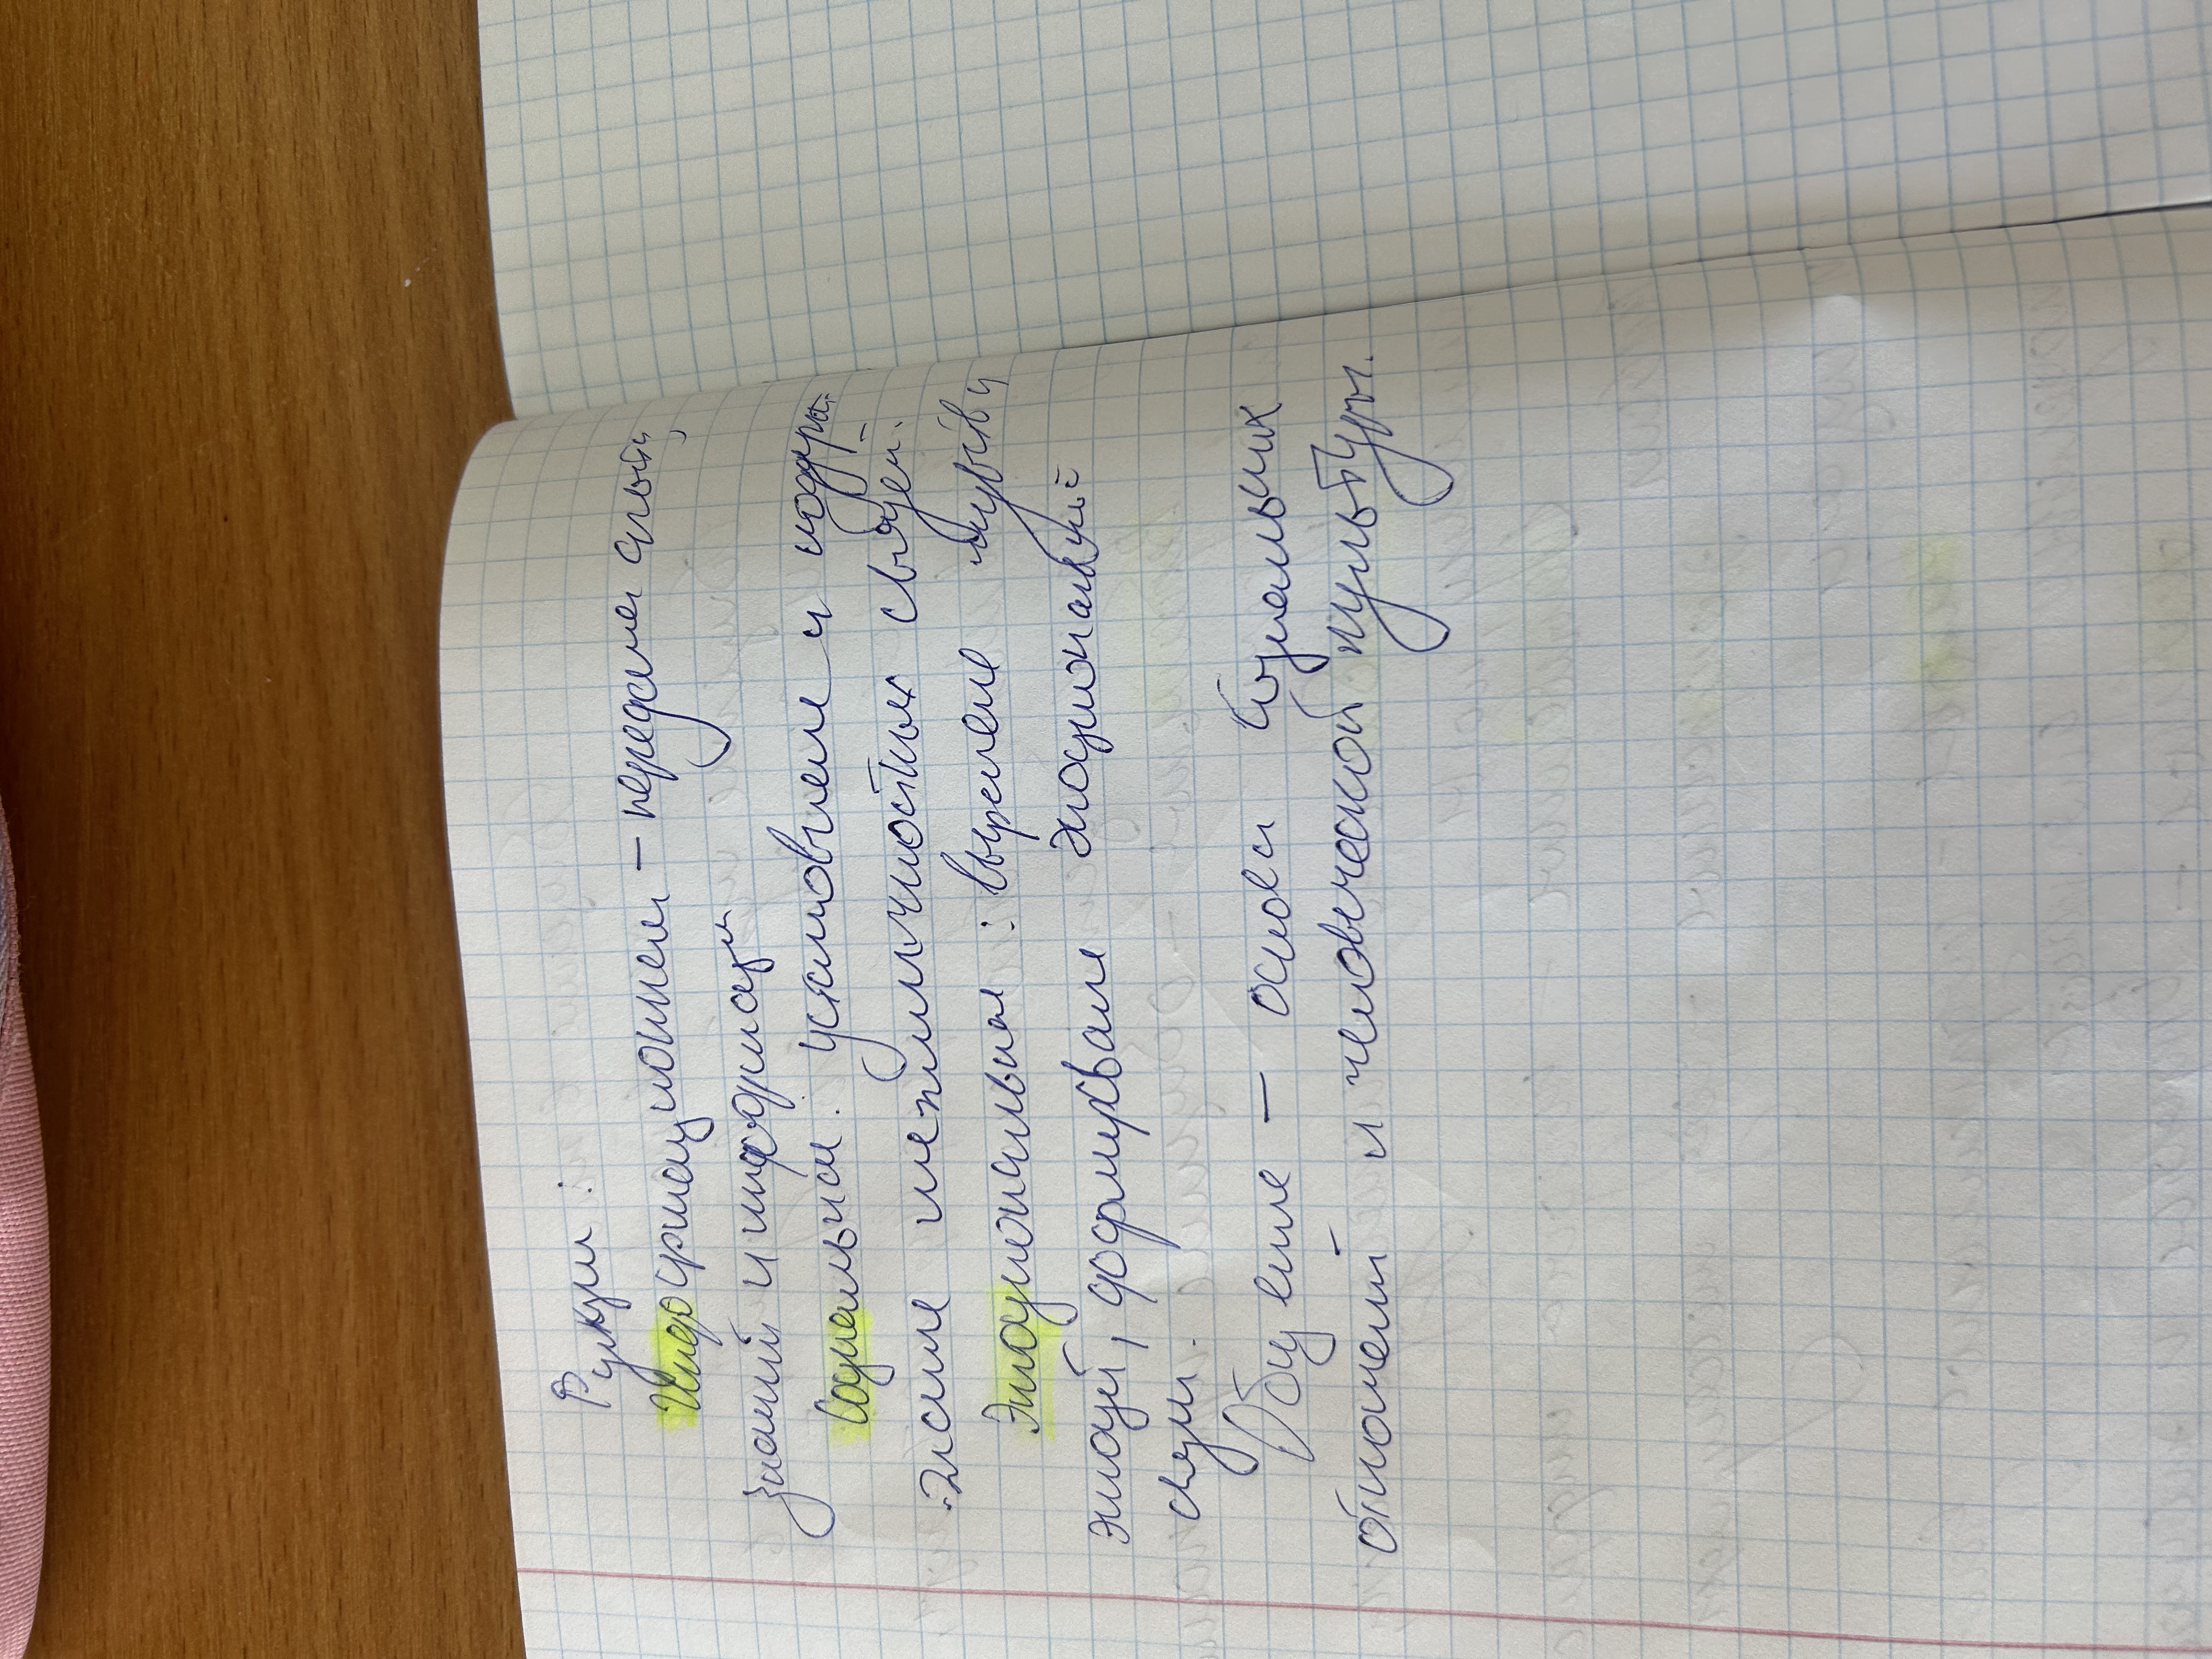 Функции:
Информационная – передача опыта,
знаний и информации
Социальная: установление и поддер-
жание межличностных связей.
Эмоциональная: выражение чувств и
эмоций, поддерживание эмоциональной
связи.
Общение – основа социальных
отношений и человеческой культуры.